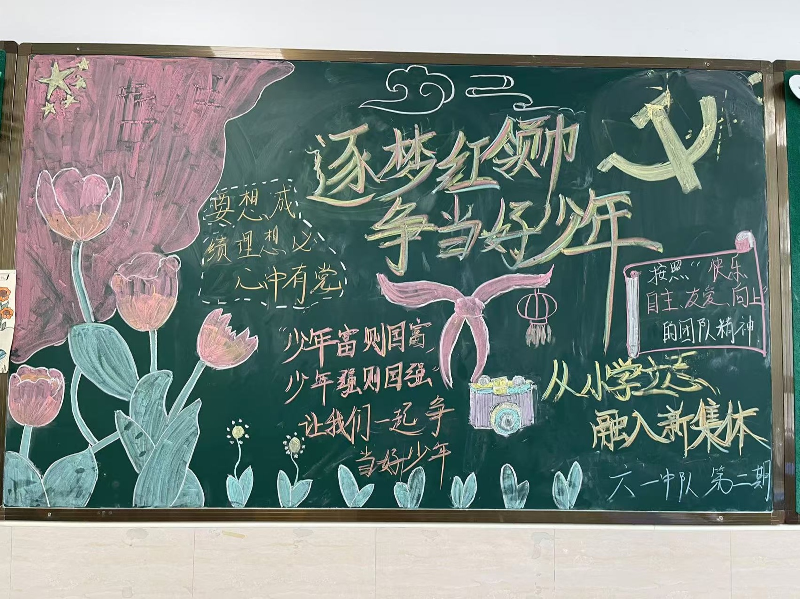 逐梦红领巾
争当好少年
要想成
绩理想必
心中有党
按照“快乐
自主、友爱、向上”
的团队精神
“少年富则国富
少年强则国强”
让我们一起争
当好少年
从小学立志、
融入新集体
六一中队 第二期